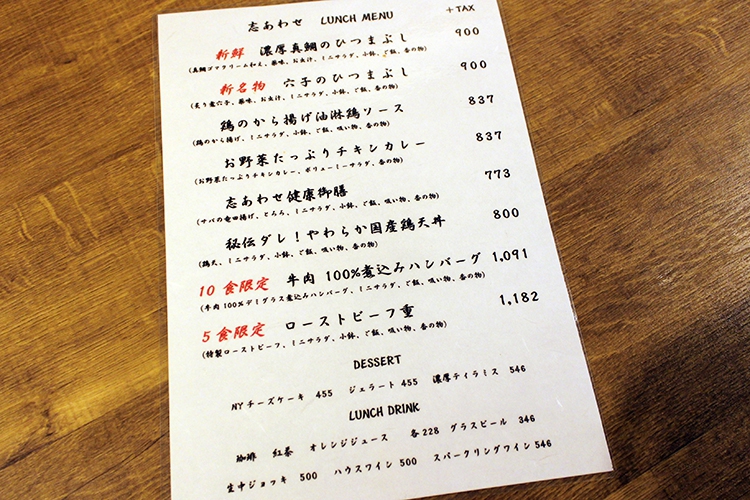 志あわせ LUNCH MENU +TAX
新鮮 濃厚真鯛のひつまぶし 900
(真鯛ゴマクリーム和え、薬味、お出汁、ミニサラダ、小鉢、ご飯、香の物)
新名物 穴子のひつまぶし 900
(炙り煮穴子、薬味、お出汁、ミニサラダ、小鉢、ご飯、香の物)
鶏のから揚げ油淋鶏ソース 837
(鶏のから揚げ、ミニサラダ、小鉢、ご飯、吸い物、香の物)
お野菜たっぷりチキンカレー 837
(お野菜たっぷりチキンカレー、ボリューミーサラダ、香の物)
志あわせ健康御膳 773
(サバの竜田揚げ、とろろ、ミニサラダ、小鉢、ご飯、吸い物、香の物)
秘伝ダレ!やわらか国産鶏天丼 800
(鶏天、ミニサラダ、小鉢、ご飯、吸い物、香の物)
10食限定 牛肉100%煮込みハンバーグ 1,091
(牛肉100%デミグラス煮込みハンバーグ、ミニサラダ、ご飯、吸い物、香の物)
5食限定 ローストビーフ重 1,182
(特製ローストビーフ、ミニサラダ、小鉢、ご飯、吸い物、香の物)
DESSERT
NYチーズケーキ 455 ジェラート 455 濃厚ティラミス 546
LUNCH DRINK
珈琲 紅茶 オレンジジュース 各228 グラスビール 346
生中ジョッキ 500 ハウスワイン 500 スパークリングワイン 546